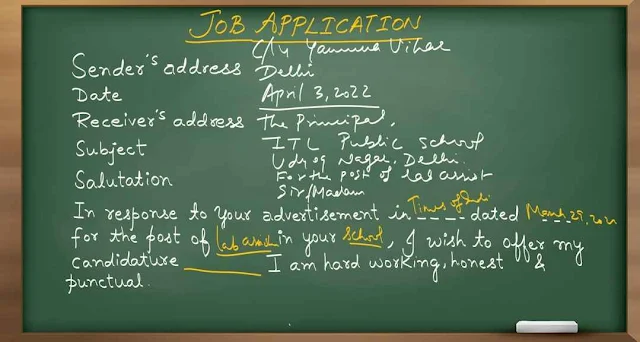 JOB APPLICATION
C/4 Yamuna Vihar
Sender's address Delhi
Date April 3, 2022
Receiver's address The Principal,
Subject ITL Public School
Udyog Nagar, Delhi.
Salutation For the post of lab assist
Sir/Madam
In response to your advertisement in Times of Indi dated March 29, 202
for the post of Lab assist in your School, I wish to offer my
candidature ______ I am hard working, honest &
punctual.